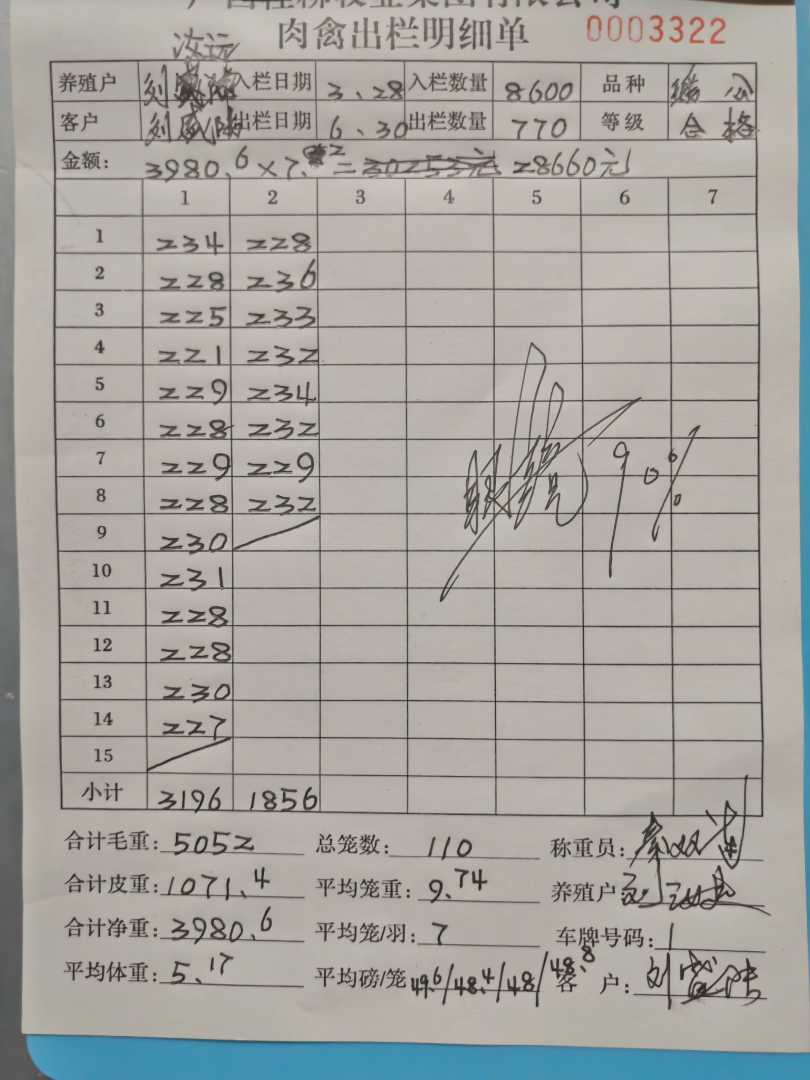 肉禽出栏明细单 0003322
汝远
养殖户 刘 入栏日期 3.28 入栏数量 8600 品种 公
客户 刘盛陆 出栏日期 6.30 出栏数量 770 等级 合格
金额: 3980.6×7.2=30253元 28660元
1 2 3 4 5 6 7
1 234 228
2 228 236
3 225 233
4 221 232
5 229 234
6 228 232
7 229 229
8 228 232
9 230
10 231
11 228
12 228
13 230
14 227
15
小计 3196 1856
90%
合计毛重: 5052 总笼数: 110 称重员:
合计皮重: 1071.4 平均笼重: 9.74 养殖户
合计净重: 3980.6 平均笼/羽: 7 车牌号码: 1
平均体重: 5.17 平均磅/笼 49.6/48.4/48/48.8 客 户: 刘盛陆